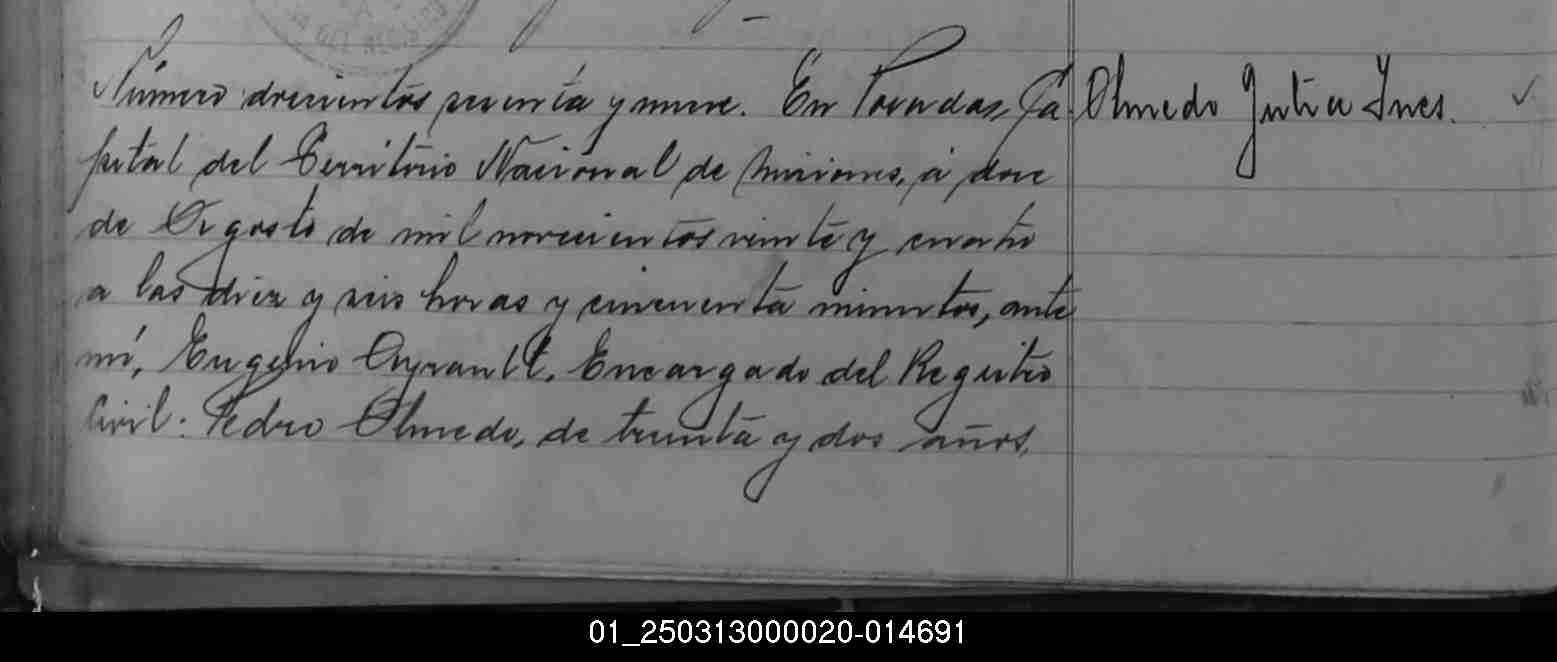 DEL REGISTRO
Número doscientos sesenta y nueve. En Posadas, Ca
Olmedo Julia Ines.
pital del Territorio Nacional de Misiones, á doce
de Agosto de mil novecientos veinte y cuatro
a las diez y seis horas y cincuenta minutos, ante
mí, Eugenio Ayrault, Encargado del Registro
Civil: Pedro Olmedo, de treinta y dos años,
01_250313000020-014691